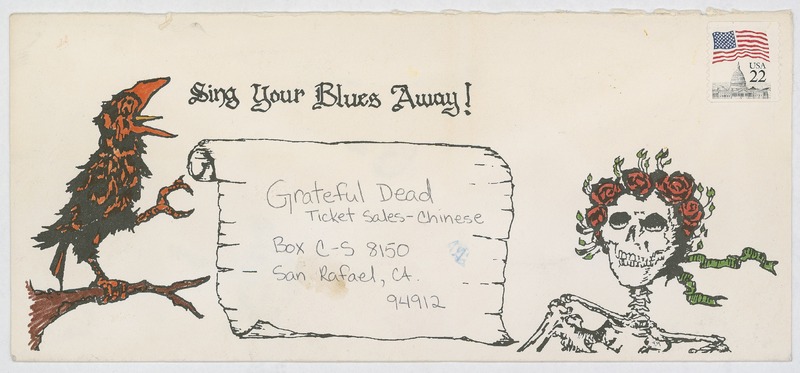 Sing Your Blues Away!
USA
22
Grateful Dead
Ticket Sales-Chinese
Box C-S 8150
San Rafael, CA.
94912